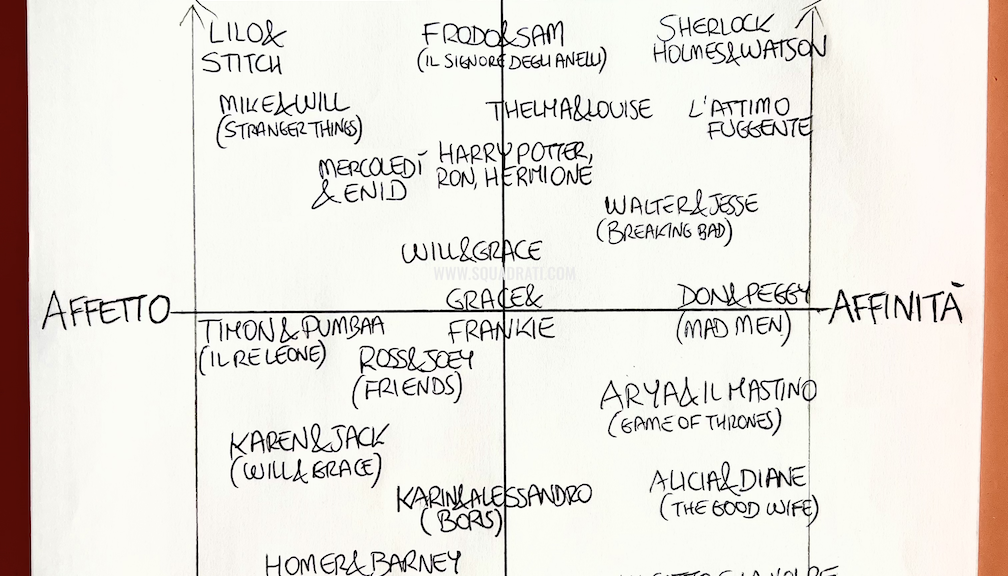 LILO&
STITCH
FRODO&SAM
(IL SIGNORE DEGLI ANELLI)
SHERLOCK
HOLMES&WATSON
MIKE&WILL
(STRANGER THINGS)
THELMA&LOUISE
L'ATTIMO
FUGGENTE
MERCOLEDÌ
& ENID
HARRY POTTER,
RON, HERMIONE
WALTER&JESSE
(BREAKING BAD)
WILL&GRACE
WWW.SQUADRATI.COM
AFFETTO
GRACE&
FRANKIE
DON&PEGGY
(MAD MEN)
AFFINITÀ
TIMON&PUMBAA
(IL RE LEONE)
ROSS&JOEY
(FRIENDS)
ARYA&IL MASTINO
(GAME OF THRONES)
KAREN&JACK
(WILL&GRACE)
KARIN&ALESSANDRO
(BORIS)
ALICIA&DIANE
(THE GOOD WIFE)
HOMER&BARNEY